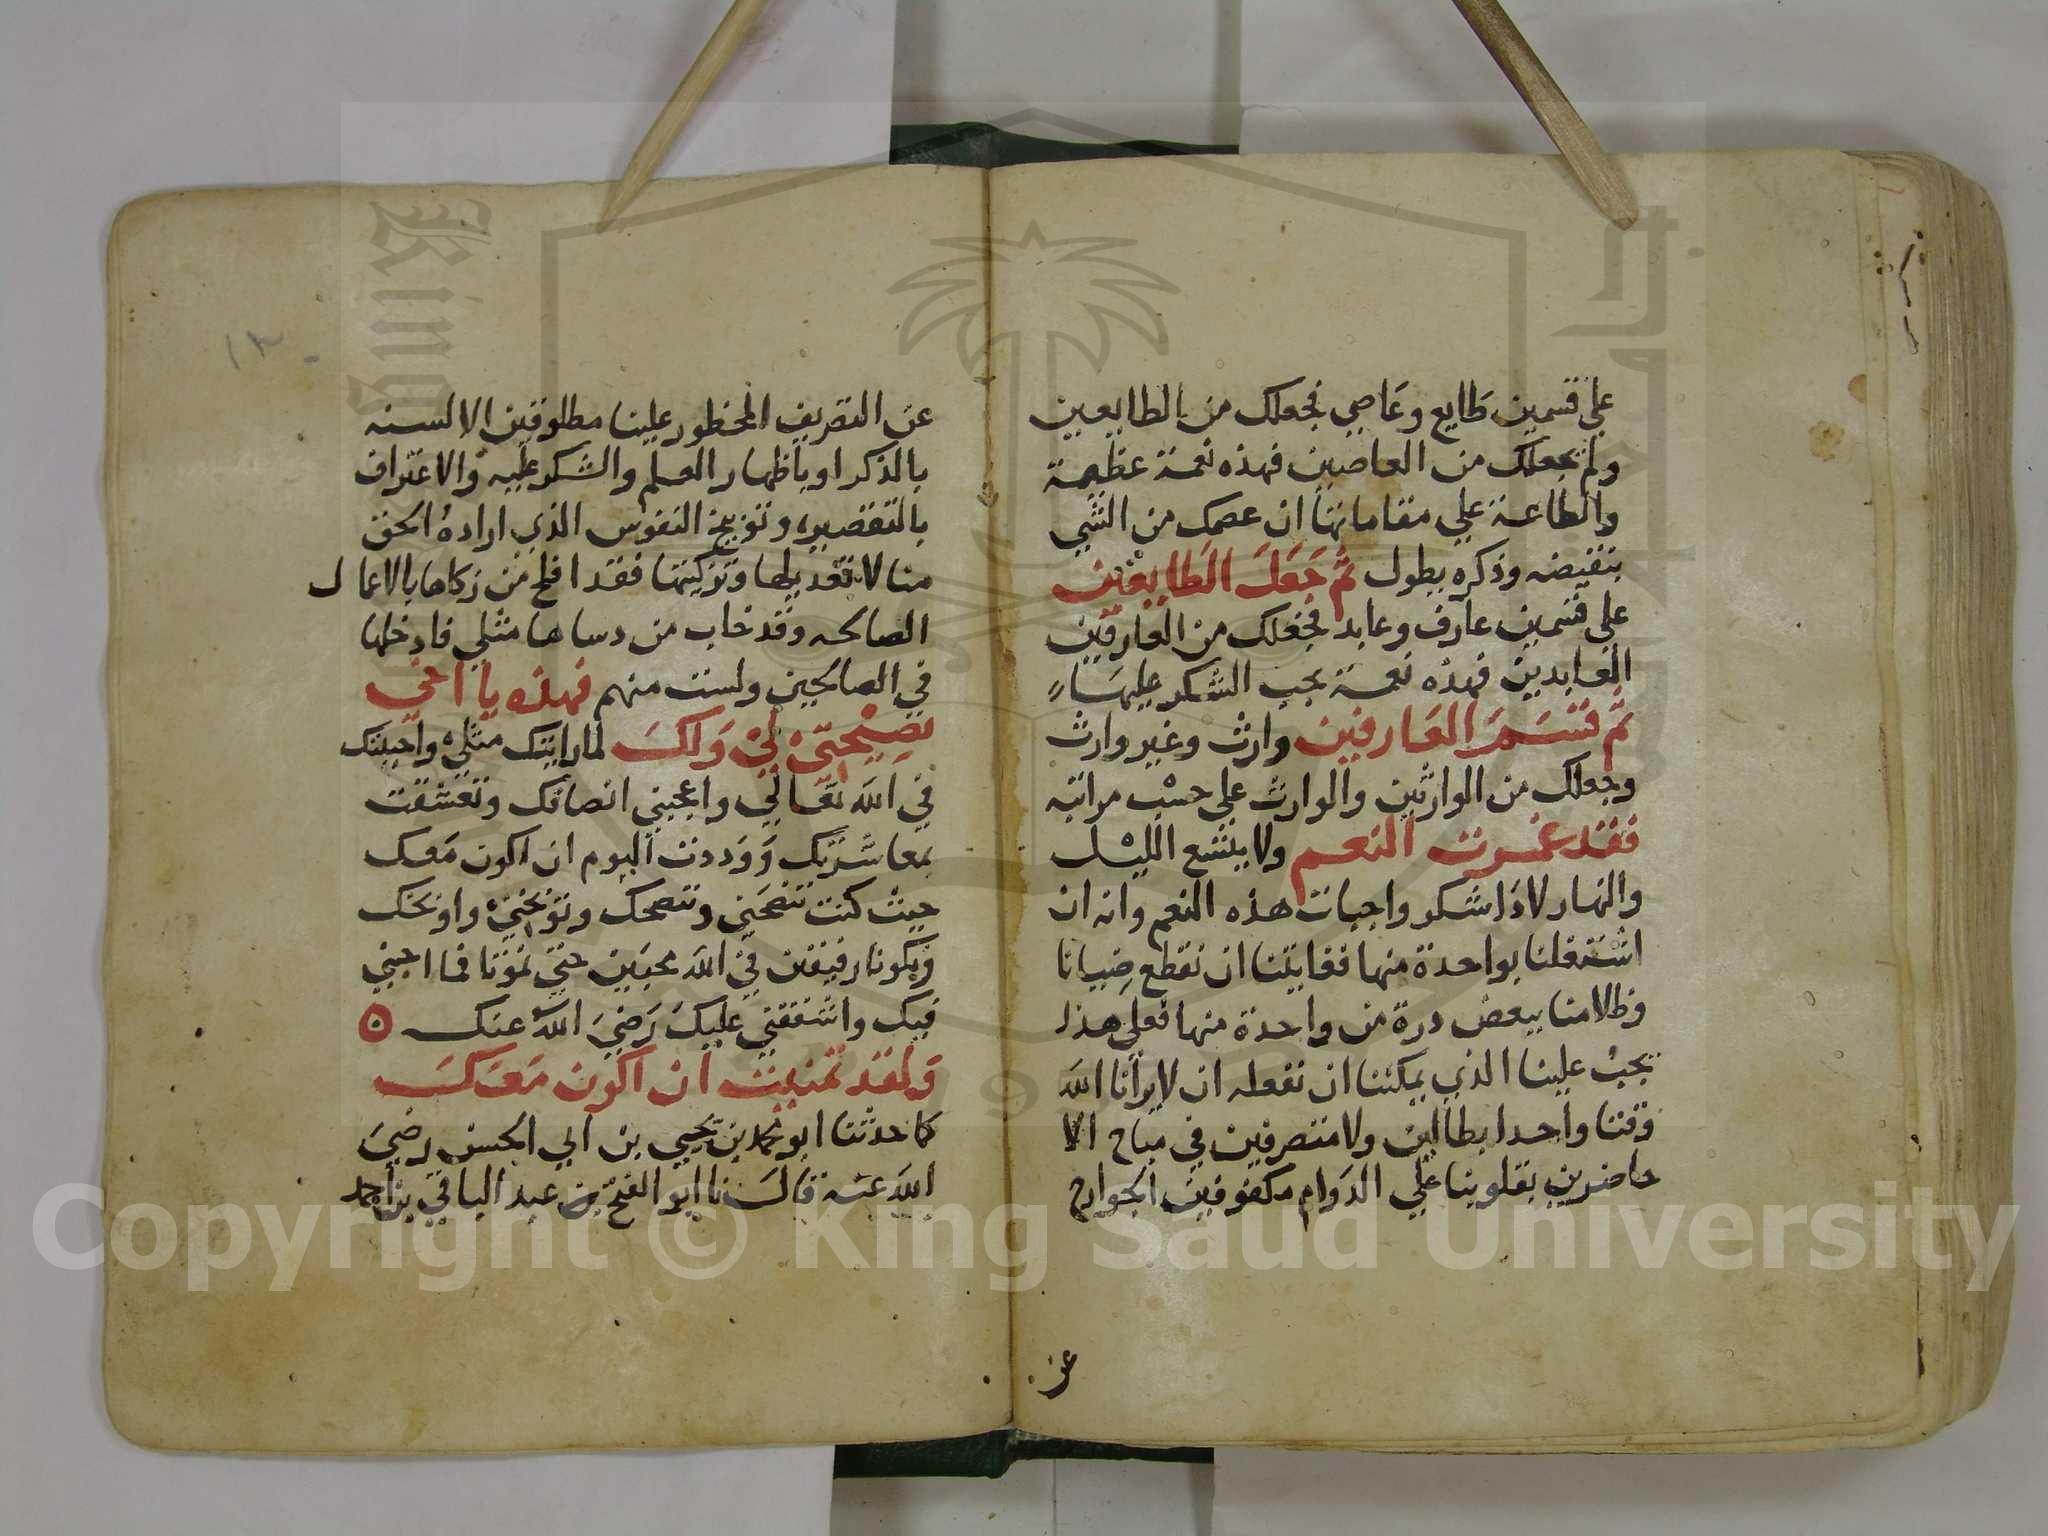 على قسمين طايع وعاصي فجعلك من الطايعين
ولم يجعلك من العاصين فهذه نعمة عظيمة
والطاعة على مقاماتها ان عصمك من الشي
بنقيضه وذكره يطول ثم جعل الطايعين
على قسمين عارف وعابد فجعلك من العارفين
العابدين فهذه نعمة يجب الشكر عليها
ثم قسم العارفين وارث وغير وارث
وجعلك من الوارثين والوارث على حسب مراتبه
فقد غمرت النعم ولا يتسع الليل
والنهار لاداشكر واجبات هذه النعم وانه ان
اشتغلنا بواحدة منها فغايتنا ان نقطع ضيانا
وظلامنا ببعض درة من واحدة منها فعلى هذا
يجب علينا الذي يمكننا ان نفعله ان لا يرانا الله
وقتا واحدا بطالين ولا متصرفين في مباح الا
حاضرين بقلوبنا على الدوام مكفوفين الجوارح
عن
١٣
عن التصريف المحظور علينا مطلوقين الالسنه
بالذكر او باظهار العلم والشكر عليه والاعتراف
بالتقصير وتوبيخ النفوس الذي اراده الحق
منا لا تعديلها وتزكيتها فقد افلح من زكاها بالاعمال
الصالحه وقد خاب من دساها مثلي فادخلها
في الصالحين ولست منهم فهذه يا اخي
نصيحتي لي ولك لما رايتك مثلي واحببتك
في الله تعالى واعجبني انصافك وتعشقت
بمعاشرتك ووددت اليوم ان اكون معك
حيث كنت تنصحني وننصحك وتوبخني واوبخك
ويكونا رفيقين في الله محبين حتى نموتا فما احبني
فيك واشفقني عليك رضي الله عنك ه
ولقد تمنيت ان اكون معك
كما حدثنا ابو محمد بن يحيى بن ابي الحسن رضي
الله عنه قال نا ابو الفتح بن عبد الباقي بن احمد
Copyright © King Saud University